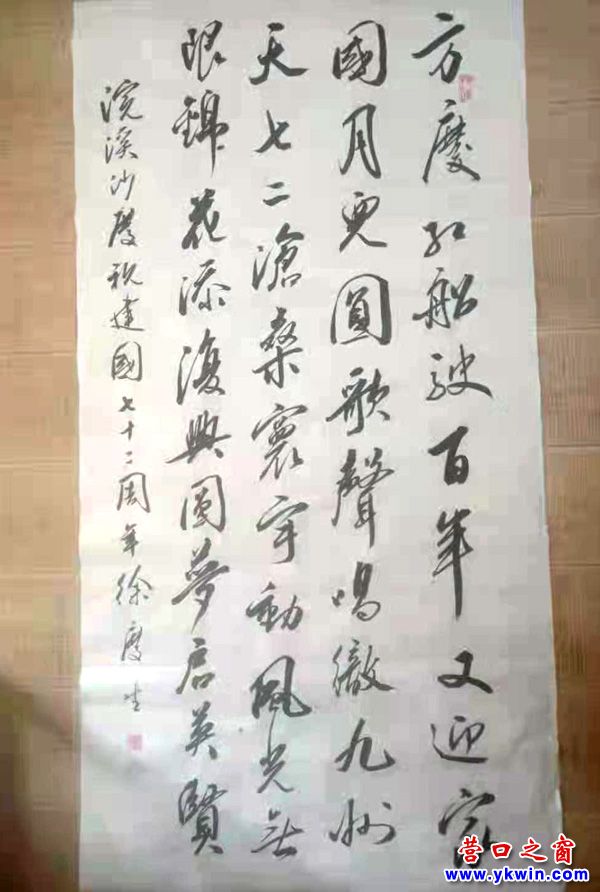 方慶紅船駛百年又迎家
國月兒圓歌聲唱徹九州
天七二滄桑寰宇動風光无
限錦花添復興圓夢启英賢
浣溪沙慶祝建國七十二周年徐慶生
营口之窗
www.ykwin.com